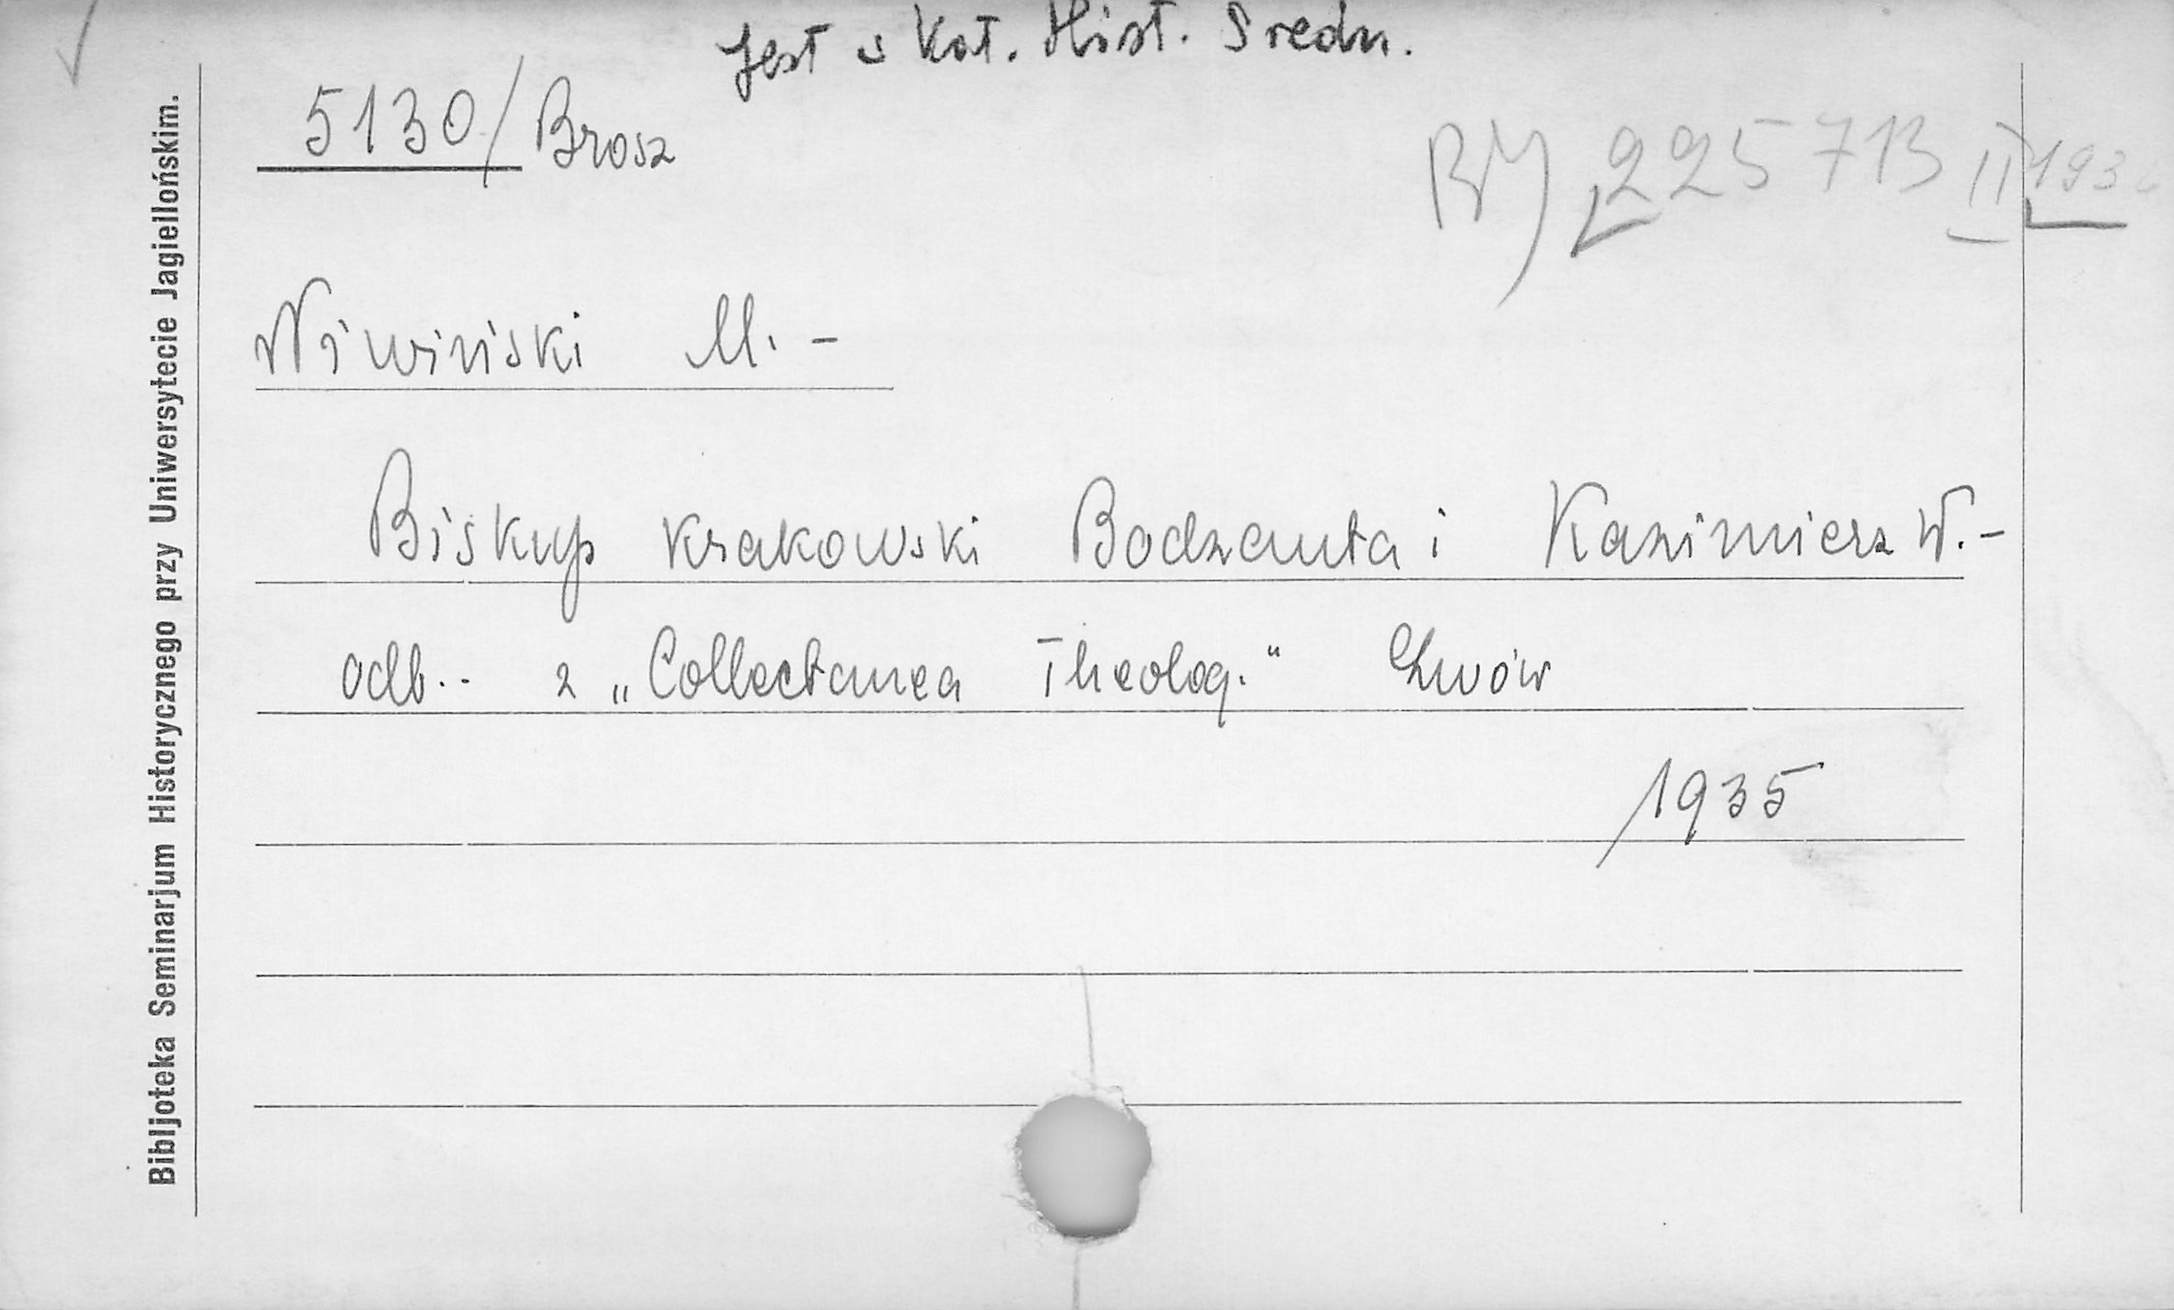 Jest w Kat. Hist. Średn.
5130/Brosz
BJ 225713 II
Niwiński M. -
Biskup krakowski Bodzanta i Kazimierz W. -
odb.. z „Collectanea Theolog." Lwów
1935
Bibljoteka Seminarjum Historycznego przy Uniwersytecie Jagiellońskim.